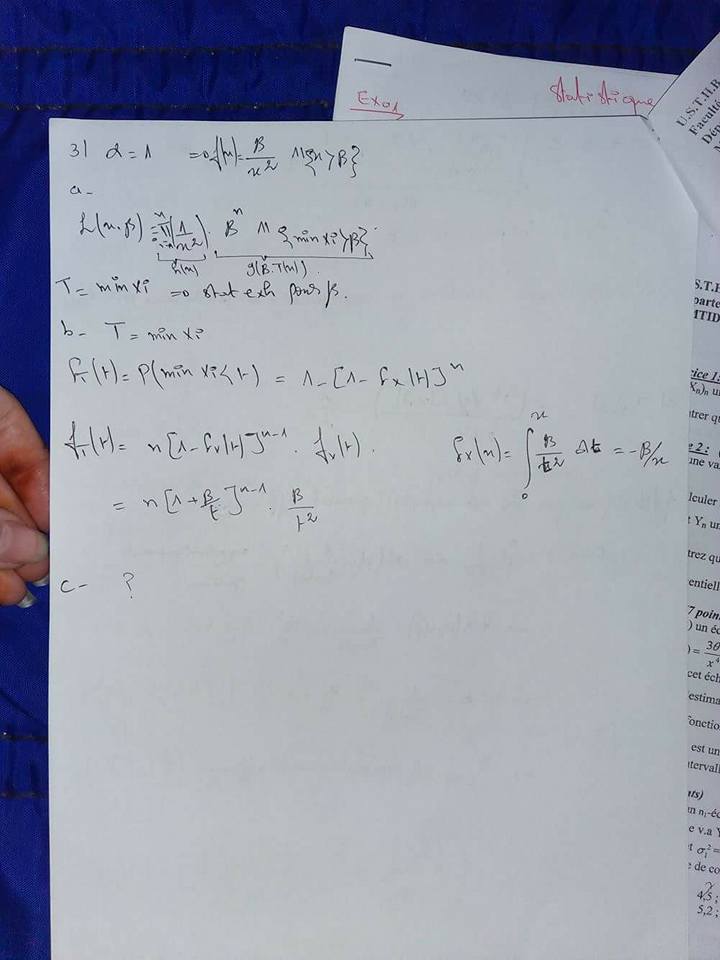 Exo1
Statistique
U.S.T.H.B
Facul
Dép
3) α = 1 ⇒ f(x) = β/x² 𝟙{x > β}
a-
L(x, β) = ∏ᵢ₌₁ⁿ (1/x²) · βⁿ 𝟙{min xi > β}
h(x) g(β, T(x))
T = min xi ⇒ stat exh pour β.
b- T = min xi
F_T(t) = P(min xi < t) = 1 - [1 - F_X(t)]ⁿ
f_T(t) = n[1 - F_X(t)]ⁿ⁻¹ · f_X(t).
F_X(x) = ∫₀ˣ β/t² dt = -β/x
= n[1 + β/t]ⁿ⁻¹ · β/t²
c- ?
S.T.H
parte
MTID
cice 1:
Xn)n u
trer qu
e 2 :
une va
lculer
t Yn un
trez qu
entiell
7 poin
) un éc
) = 3θ/x⁴
cet éch
estima
fonctio
est un
nterval
nts)
un n₁-éc
e v.a Y
t σ₁² =
e de co
4,5 ;
5,2 ;